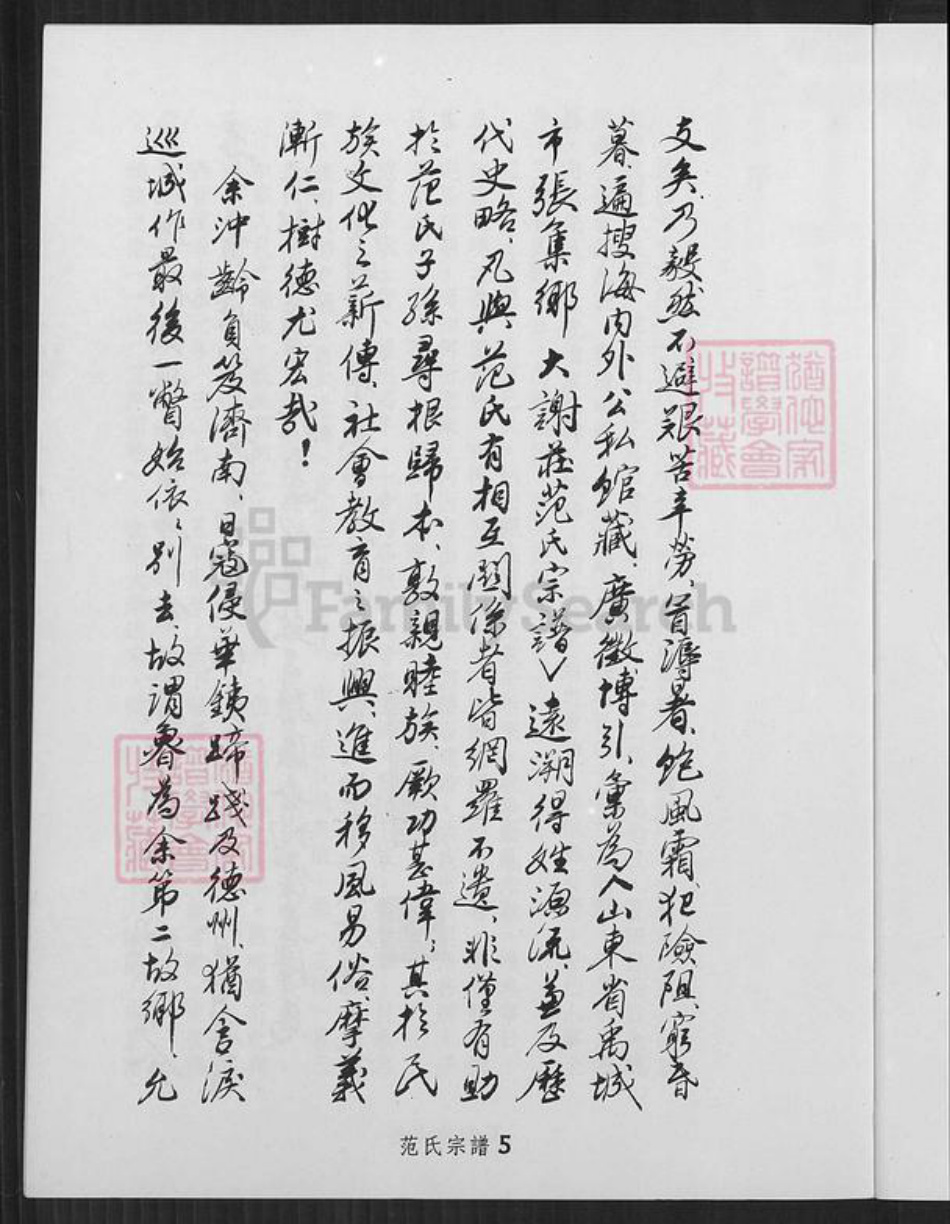 支矣、乃毅然不避艱苦辛勞、冒溽暑、飽風霜、犯險阻、窮昏
暮、遍搜海內外公私館藏、廣徵博引、彙為〈山東省禹城
市張集鄉大謝莊范氏宗譜〉遠溯得姓源流、兼及歷
代史略、凡與范氏有相互關係者皆網羅不遺、非僅有助
於范氏子孫尋根歸本、敦親睦族、厥功甚偉；其於民
族文化之薪傳、社會教育之振興、進而移風易俗、摩義
漸仁、樹德尤宏哉！
余沖齡負笈濟南、日寇侵華鐵蹄踐及德州、猶含淚
巡城作最後一瞥始依〻別去、故謂魯為余第二故鄉、允
猶他家
譜學會
特藏
猶他家
譜學會
特藏
FamilySearch
范氏宗譜 5